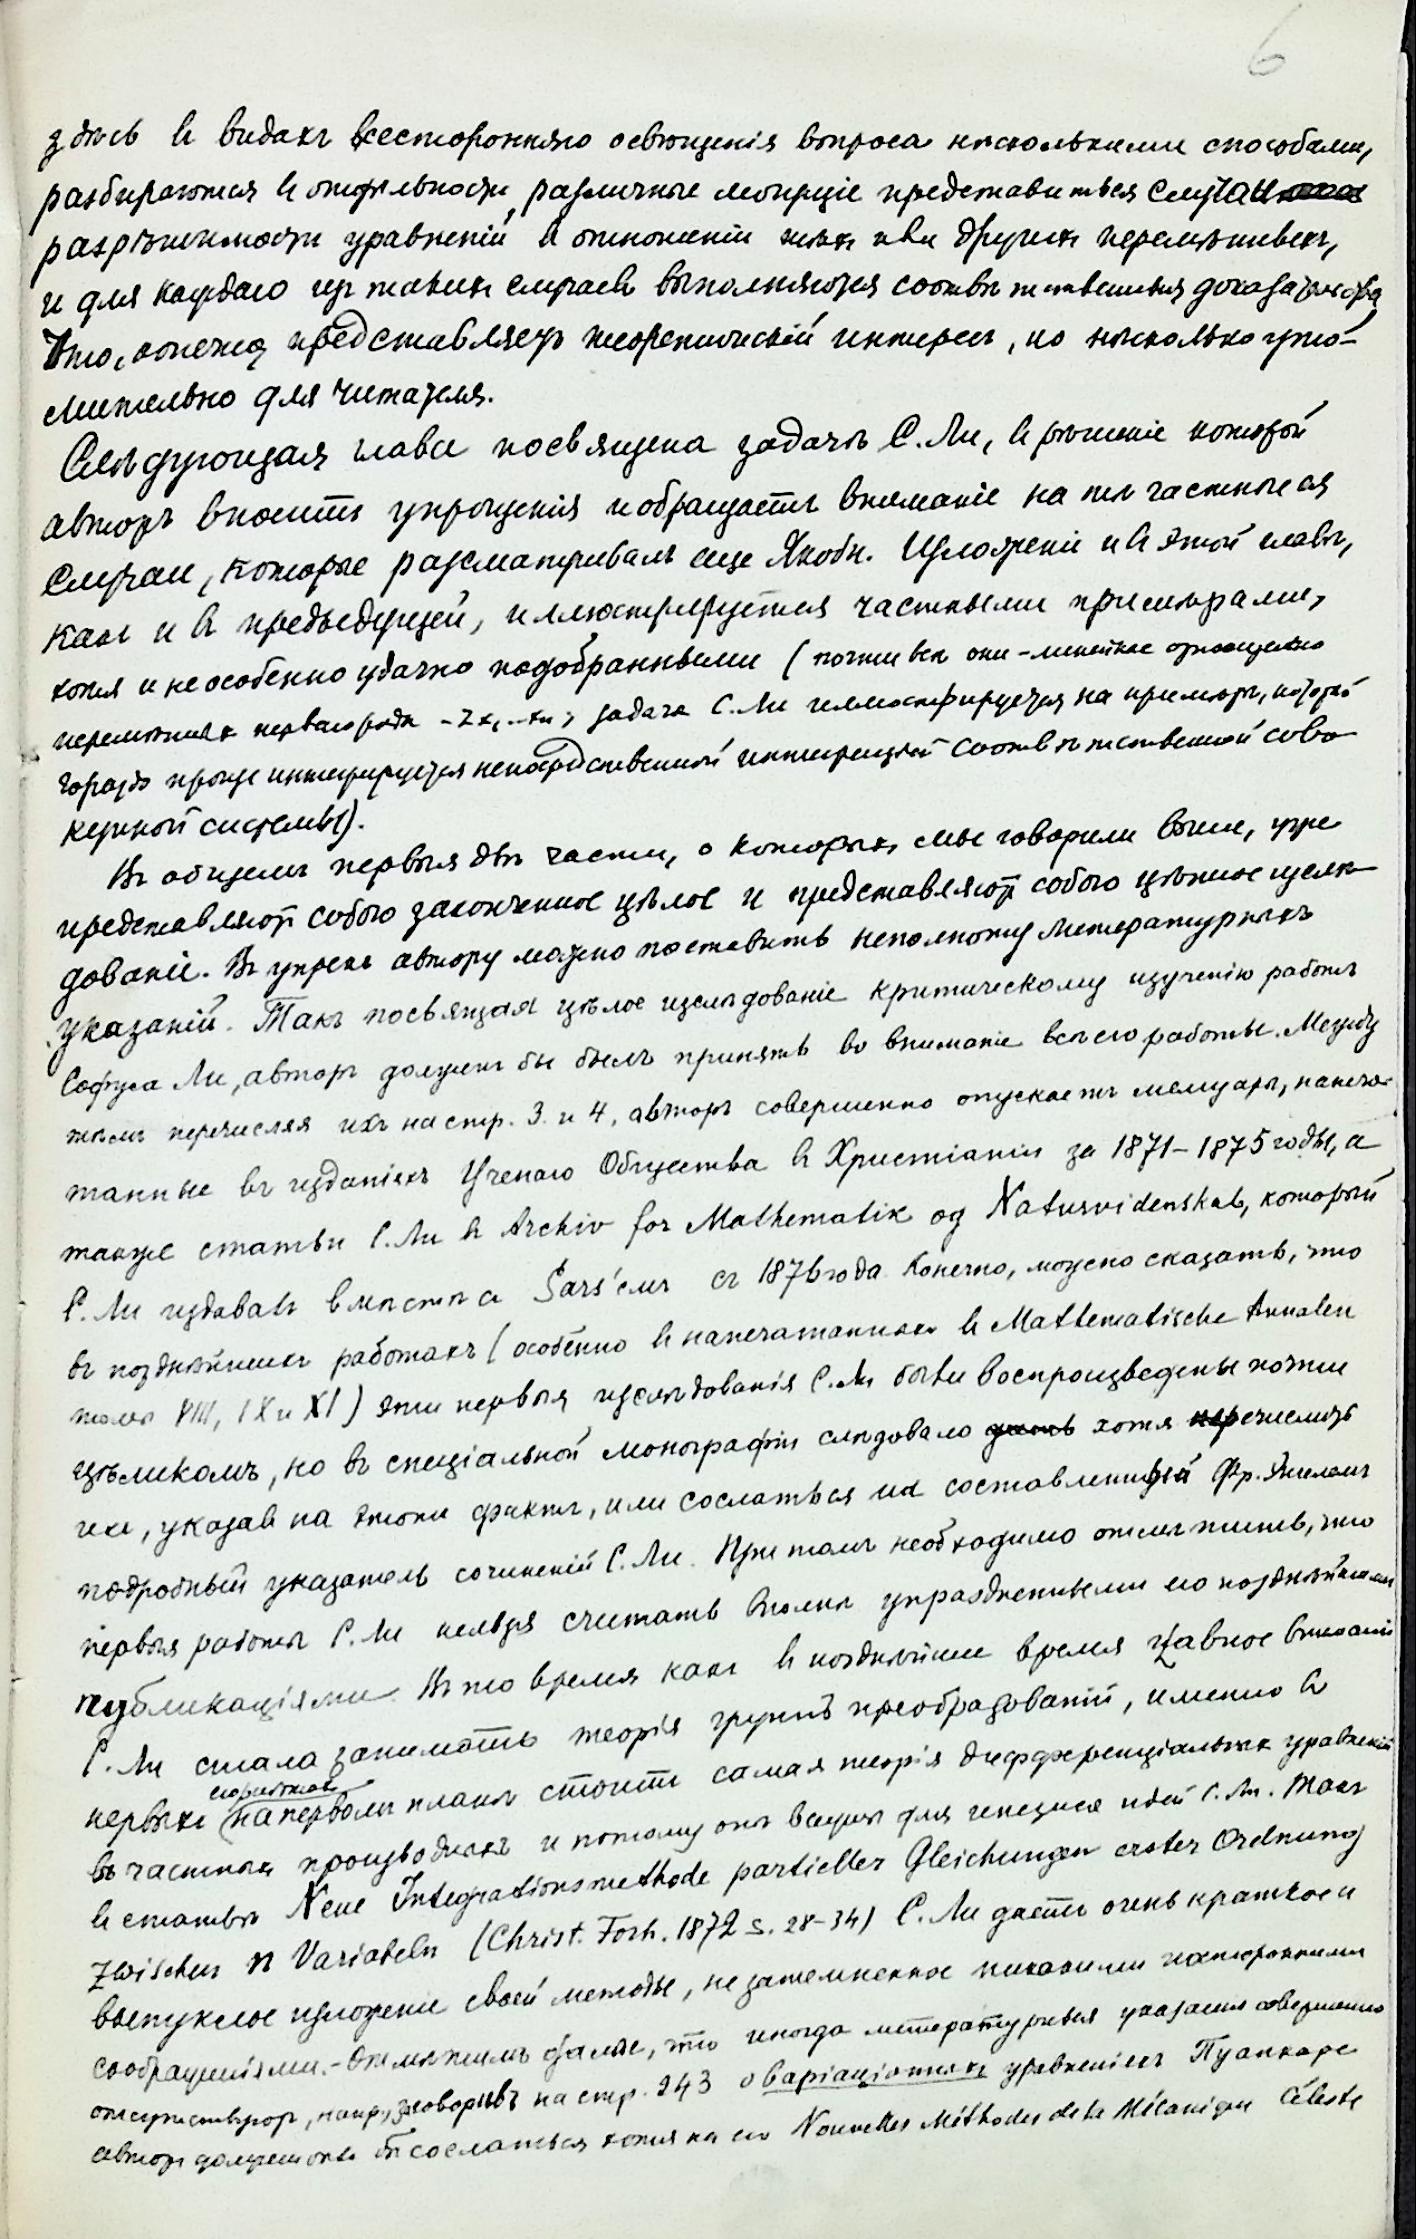 6
здѣсь въ видахъ всесторонняго освѣщенія вопроса нѣсколькими способами,
разбираются въ отдѣльности различные могущіе представиться случаи
разрѣшимости уравненій въ отношеніи тѣхъ или другихъ перемѣнныхъ,
и для каждаго изъ такихъ случаевъ выполняются соотвѣтственныя доказательства
Это, конечно, представляетъ теоретическій интересъ, но нѣсколько уто-
мительно для читателя.
Слѣдующая глава посвящена задачѣ С. Ли, въ рѣшеніе которой
авторъ вноситъ упрощенія и обращаетъ вниманіе на тѣ частные
случаи, которые разсматривалъ еще Якоби. Изложеніе и въ этой главѣ,
какъ и въ предыдущей, иллюстрируется частными примѣрами,
хотя и не особенно удачно подобранными (почти всѣ они - линейные относительно
перемѣнныхъ перваго ряда задача С. Ли иллюстрируется на примѣрѣ, который
гораздо проще интегрируется непосредственной интеграціей соотвѣтственной сово-
купной системы).
Въ общемъ первыя двѣ части, о которыхъ мы говорили выше, уже
представляютъ собою законченное цѣлое и представляютъ собою цѣнное изслѣ-
дованіе. Въ упрекъ автору можно поставить неполноту литературныхъ
указаній. Такъ посвящая цѣлое изслѣдованіе критическому изученію работъ
Софуса Ли, авторъ долженъ бы былъ принять во вниманіе всѣ его работы. Между
тѣмъ перечисляя ихъ на стр. 3 и 4, авторъ совершенно опускаетъ мемуары, напеча-
танные въ изданіяхъ Ученаго Общества въ Христіаніи за 1871-1875 годы, а
также статьи С. Ли въ Archiv for Mathematik og Naturvidenskab, который
С. Ли издавалъ вмѣстѣ съ Sars'емъ съ 1876 года. Конечно, можно сказать, что
въ позднѣйшихъ работахъ (особенно въ напечатанныхъ въ Mathematische Annalen
томы VIII, IX и XI) эти первыя изслѣдованія С. Ли были воспроизведены почти
цѣликомъ, но въ спеціальной монографіи слѣдовало хотя перечислить
ихъ, указавъ на этотъ фактъ, или сослаться на составленный Фр. Энгелемъ
подробный указатель сочиненій С. Ли. При томъ необходимо отмѣтить, что
первыя работы С. Ли нельзя считать вполнѣ упраздненными его позднѣйшими
публикаціями. Въ то время какъ въ позднѣйшее время главное вниманіе
С. Ли стала занимать теорія группъ преобразованій, именно въ
первыхъ на первомъ планѣ стоитъ самая теорія дифференціальныхъ уравненій
въ частныхъ производныхъ и потому онѣ важны для генезиса идей С. Ли. Такъ
въ статьѣ Neue Integrationsmethode partieller Gleichungen erster Ordnung
zwischen n Variabeln (Christ. Forh. 1872 S. 28-34) С. Ли даетъ очень краткое и
выпуклое изложеніе своей методы, не затемненное никакими посторонними
соображеніями. - Отмѣтимъ далѣе, что иногда литературныя указанія совершенно
отсутствуютъ, напр. заговоривъ на стр. 243 о варіаціонныхъ уравненіяхъ Пуанкаре
авторъ долженъ бы сослаться хотя на его Nouvelles Méthodes de la Mécanique Céleste